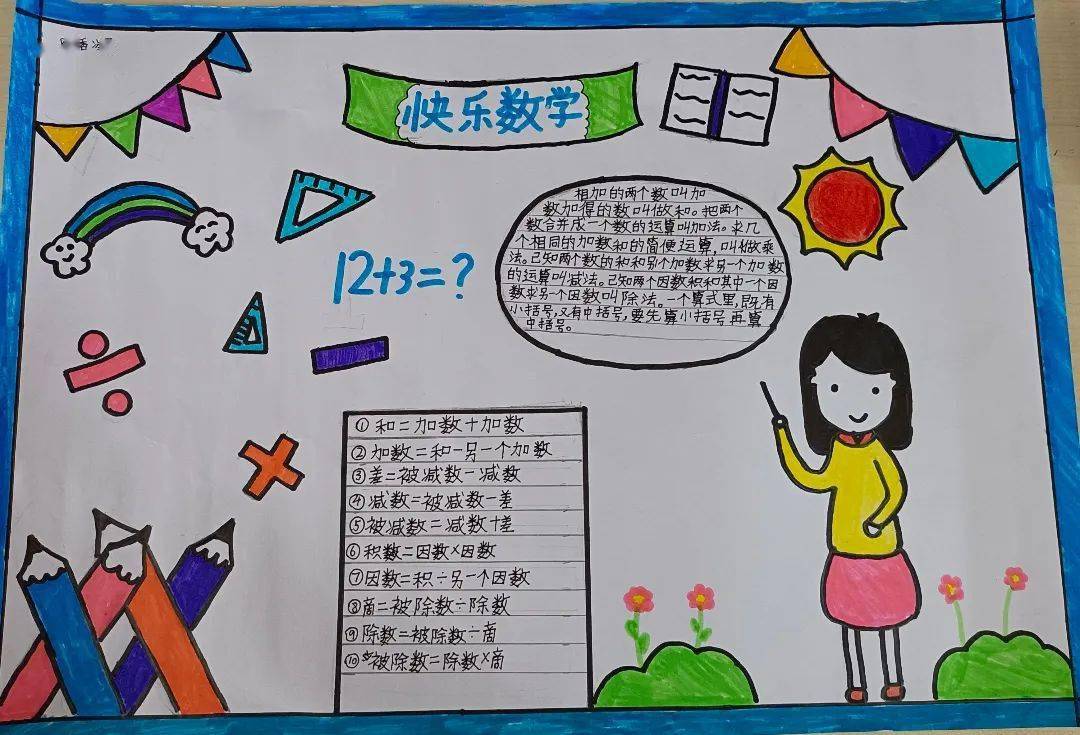 快乐数学
12+3=?
相加的两个数叫加
数加得的数叫做和。把两个
数合并成一个数的运算叫加法。求几
个相同的加数和的简便运算,叫做乘
法。己知两个数的和和另个加数求另一个加数
的运算叫减法。己知两个因数积和其中一个因
数求另一个因数叫除法。一个算式里,既有
小括号,又有中括号,要先算小括号再算
中括号。
①和=加数+加数
②加数=和-另一个加数
③差=被减数-减数
④减数=被减数-差
⑤被减数=减数+差
⑥积数=因数×因数
⑦因数=积÷另一个因数
⑧商=被除数÷除数
⑨除数=被除数÷商
⑩被除数=除数×商